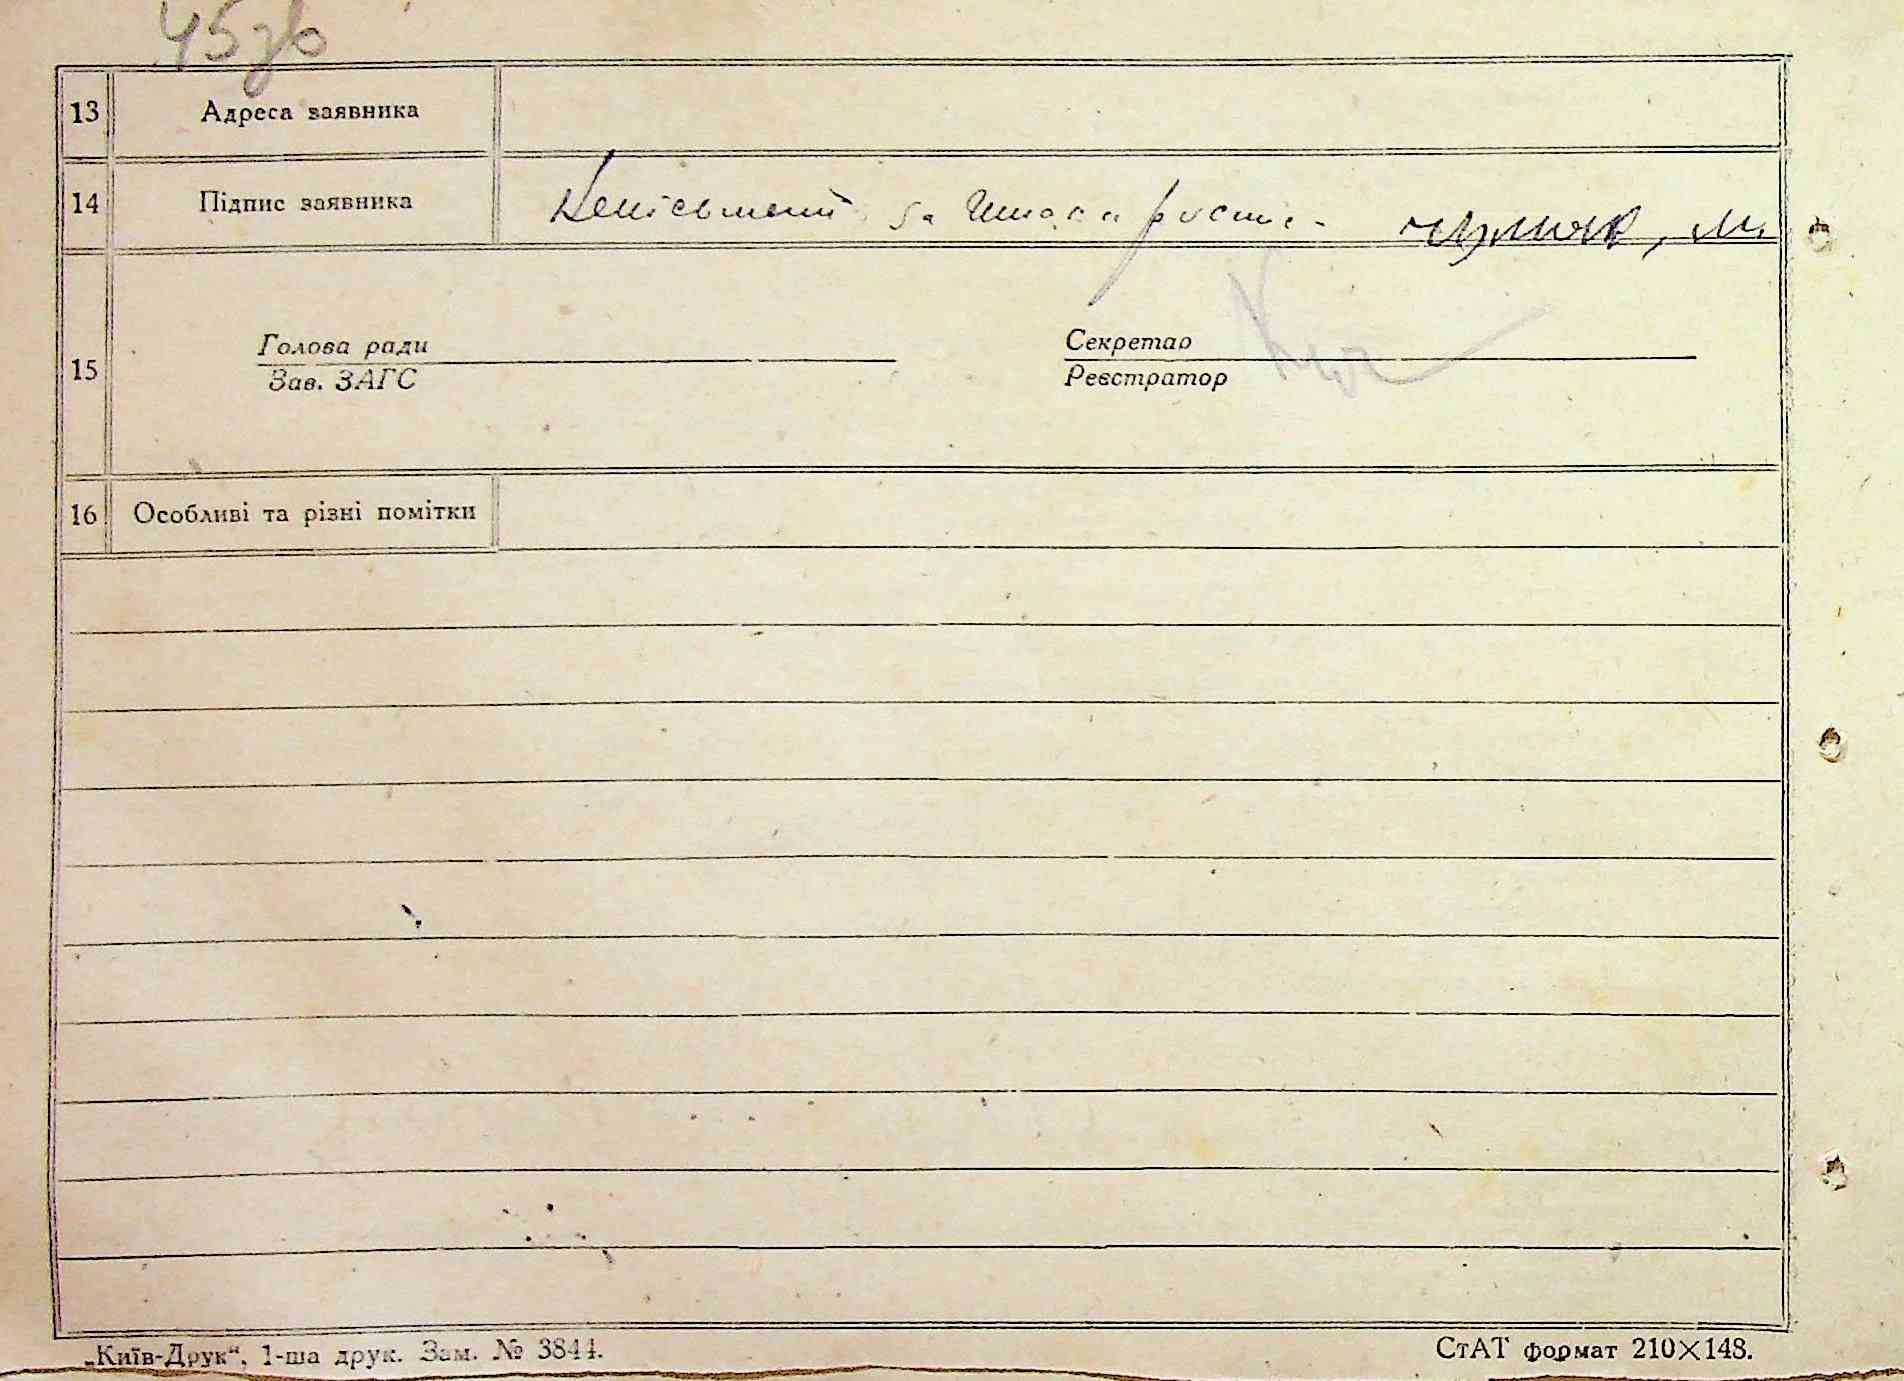 45зв
13 Адреса заявника
14 Підпис заявника Неписьмений за нього росп.- Чумак, М.
Голова ради Секретар
15
Зав. ЗАГС Реєстратор
16 Особливі та різні помітки
„Київ-Друк“, 1-ша друк. Зам. № 3844. СтАТ формат 210×148.